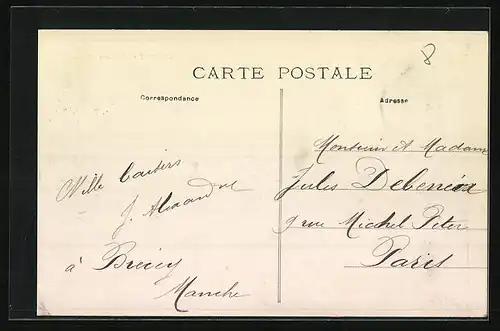 8
CARTE POSTALE
Correspondance
Adresse
Mille baisers
J. Alexandre
à Brécey
Manche
Monsieur et Madame
Jules
9 rue Michel Peter
Paris